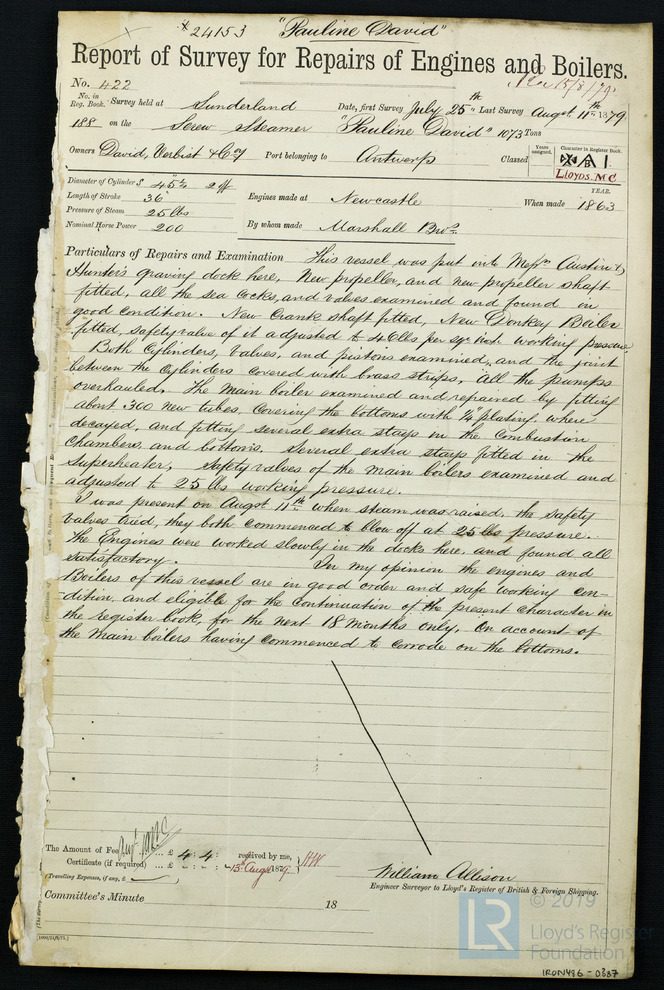 *24153 "Pauline David"
Report of Survey for Repairs of Engines and Boilers.
No. 422
15/8/79
No. in Reg. Book. Survey held at Sunderland Date, first Survey July 25th Last Survey Augst 11th 1879
188 on the Screw Steamer "Pauline David" 1073 Tons
Owners David, Verbist & Coy Port belonging to Antwerp Classed Years assigned. Character in Register Book. A 1
Lloyds. MC
Diameter of Cylinders 45½ 2 off
Length of Stroke 36" Engines made at Newcastle When made YEAR. 1863
Pressure of Steam 25 lbs
Nominal Horse Power 200 By whom made Marshall Bros.
Particulars of Repairs and Examination This vessel was put into Messrs Austin &
Hunter's graving dock here, New propeller, and new propeller shaft
fitted, all the sea cocks, and valves examined and found in
good condition. New Crank shaft fitted, New Donkey Boiler
fitted, safety valve of it adjusted to 46 lbs per sqr inch working pressure.
Both Cylinders, valves, and pistons examined, and the joint
between the Cylinders covered with brass strips, All the pumps
overhauled. The main boiler examined and repaired by fitting
about 300 new tubes, Covering the bottoms with ¼ plating, where
decayed, and fitting several extra stays in the Combustion
Chambers, and bottoms. Several extra stays fitted in the
Superheater, Safety valves of the main boilers examined and
adjusted to 25 lbs working pressure.
I was present on Augst 11th when steam was raised, the safety
valves tried, they both commenced to blow off at 25 lbs pressure.
The Engines were worked slowly in the docks here, and found all
satisfactory. In my opinion the engines and
Boilers of this vessel are in good order and safe working con-
dition, and eligible for the continuation of the present character in
the register book, for the next 18 months only. On account of
the main boilers having commenced to corrode on the bottoms.
The Amount of Fee ... £ 4 : 4 : received by me,
Certificate (if required) ... £ - : - : - 15 Augst 1879
(Travelling Expenses, if any, £ )
William Allison
Engineer Surveyor to Lloyd's Register of British & Foreign Shipping.
Committee's Minute
18
LR
© 2019
Lloyd's Register
Foundation
IRON486-0387